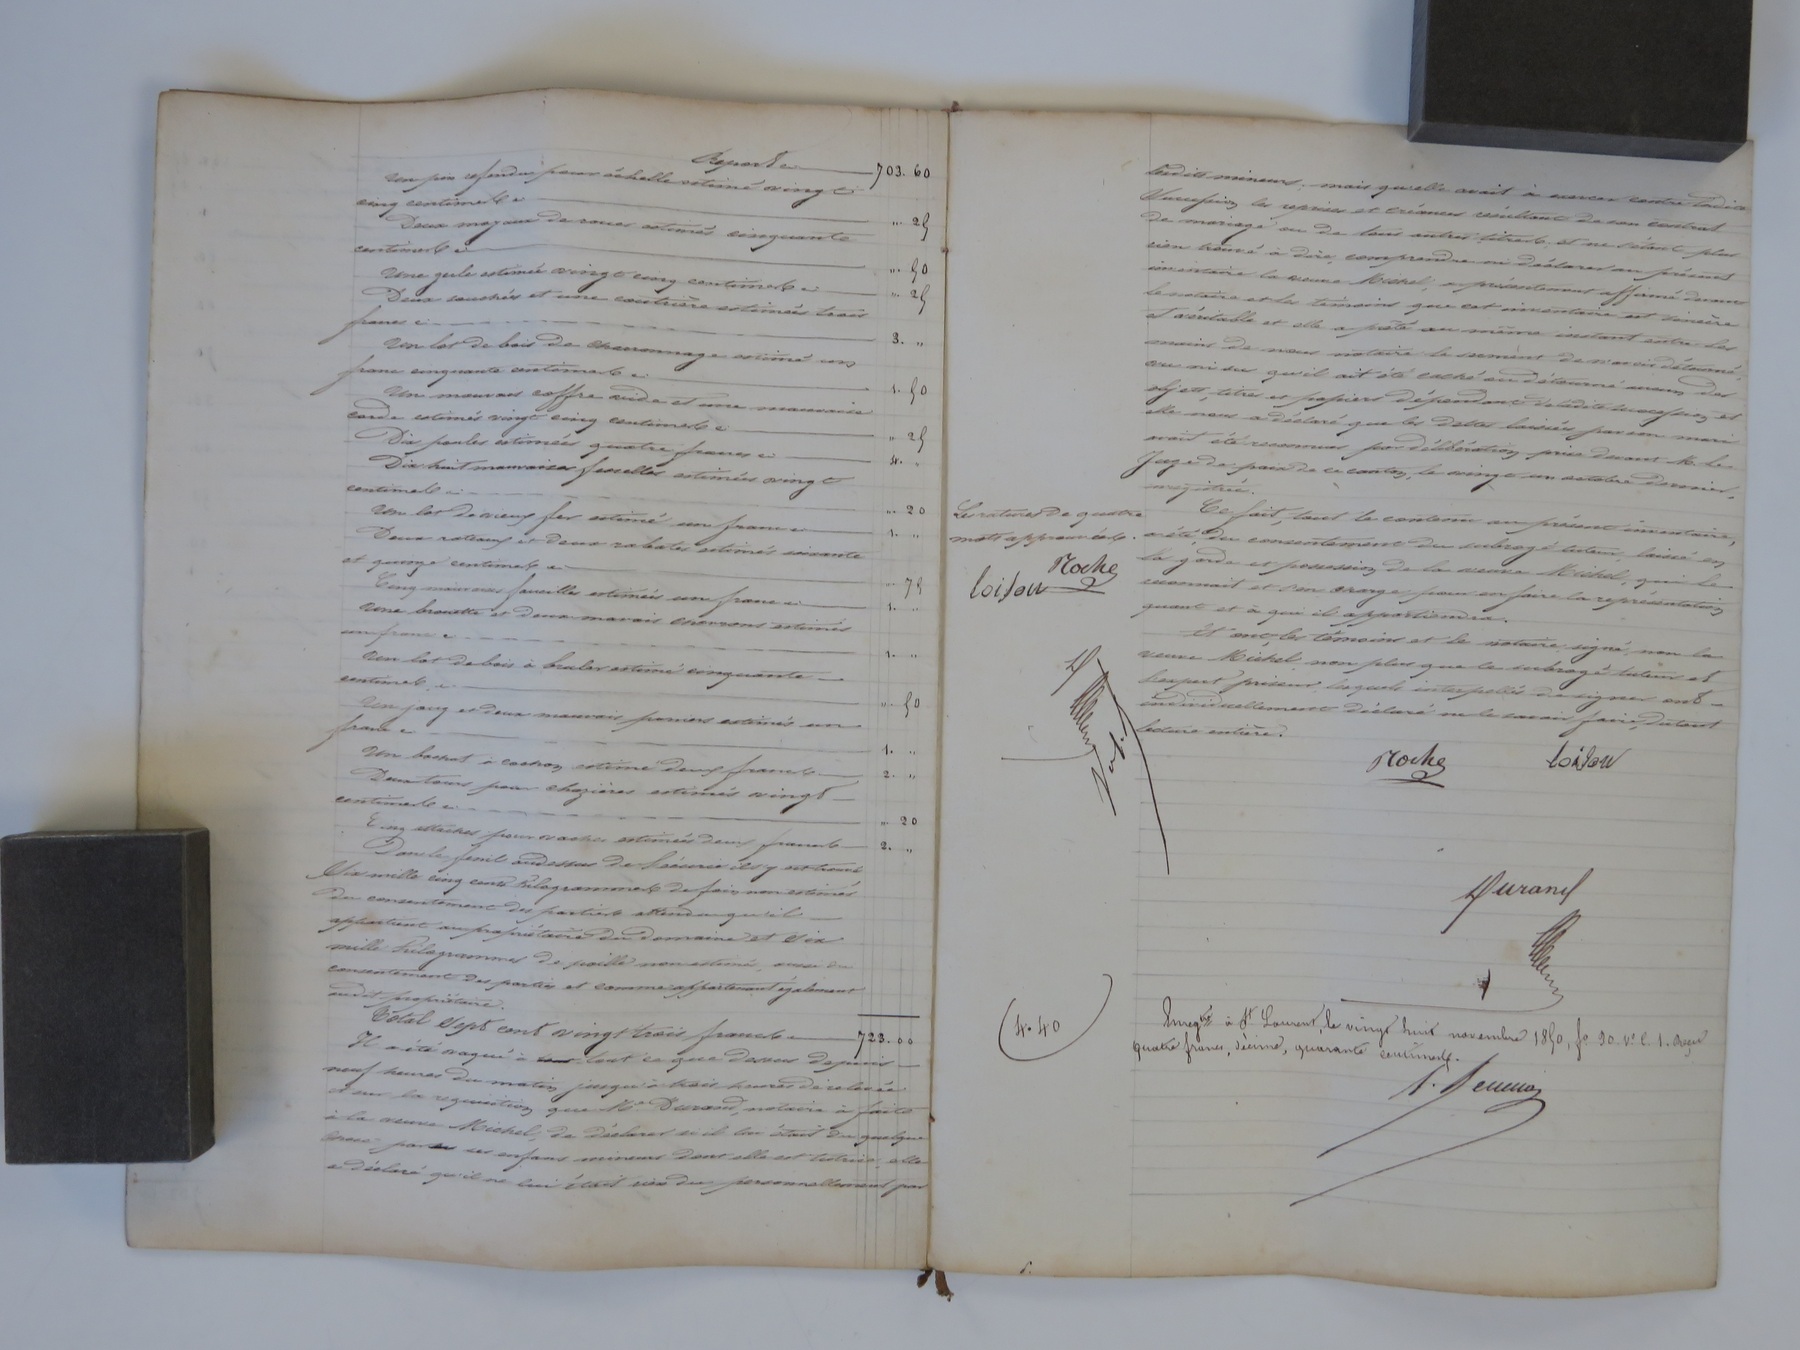 Report 703. 60
Un pin refendu pour échelle estimé vingt
cinq centimes " 25
Deux moyeux de roues estimés cinquante
centimes " 50
Une geule estimée vingt cinq centimes " 25
Deux et une estimées trois
francs 3. "
Un lot de bois de charronnage estimé un
franc cinquante centimes 1. 50
Un mauvais coffre vide et une mauvaise
corde estimés vingt cinq centimes " 25
Dix poules estimées quatre francs 4. "
Dix huit mauvaises faisselles estimées vingt
centimes " 20
Un lot de vieux fer estimé un franc 1. "
Deux rateaux et deux rabales estimés soixante
et quinze centimes " 75
Cinq mauvaises faucilles estimées un franc 1. "
Une brouette et deux mauvais chevrons estimés
un franc 1. "
Un lot de bois à bruler estimé cinquante
centimes " 50
Un joug et deux mauvais estimés un
franc 1. "
Un bachat à cochon estimé deux francs 2. "
Deux tours pour chazières estimés vingt
centimes " 20
Cinq attaches pour vaches estimées deux francs 2. "
Dans le fenil au dessus de l'écurie il s'y est trouvé
Six mille cinq cents kilogrammes de foin non estimés
du consentement des parties attendu qu'il
appartient au propriétaire du domaine et six
mille kilogrammes de paille non estimés, aussi du
consentement des parties et comme appartenant également
audit propriétaire.
Total Sept cent vingt trois francs 723. 00
Il a été vaqué à tout ce que dessus depuis
neuf heures du matin jusqu'à trois heures de relevée
et sur la requisition que Me Durand, notaire a faite
à la veuve Michel, de déclarer si il lui était du quelque
chose par ses enfans mineurs dont elle est tutrice, elle
a déclaré qu'il ne lui était rien du personnellement par
lesdits mineurs, mais qu'elle avait à exercer contre ladite
succession les reprises et créances résultant de son contrat
de mariage ou de tous autres titres et ne s'étant plus
rien trouvé à dire, comprendre ni déclarer au présent
inventaire la veuve Michel, a présentement affirmé devant
le notaire et les témoins que cet inventaire est sincère
et véritable et elle a prêté au même instant entre les
mains de nous notaire le serment de n'avoir détourné,
vu ni su qu'il ait été caché ou détourné aucun des
objets, titres et papiers dépendant de ladite succession et
elle nous a déclaré que les dettes laissées par son mari
avait été reconnues par délibération prise devant M. le
Juge de paix de ce canton, le vingt un octobre dernier,
enregistrée.
Ce fait, tout le contenu au présent inventaire,
a été, du consentement du subrogé tuteur, laissé en
la garde et possession de la veuve Michel, qui le
reconnait et s'en charge, pour en faire la représentation
quant et à qui il appartiendra.
Et ont, les témoins et le notaire signé, non la
veuve Michel non plus que le subrogé tuteur et
l'expert priseur, lesquels interpellés de signer ont
individuellement déclaré ne le savoir faire, dutout
lecture entière.
Les ratures de quatre
mots approuvées.
Roche
Loison
Roche Loison
Durand
4.40
Enregtré à St Laurent, le vingt huit novembre 1850, fo 90 Vo C. 1. Reçu
quatre francs, décime, quarante centimes.